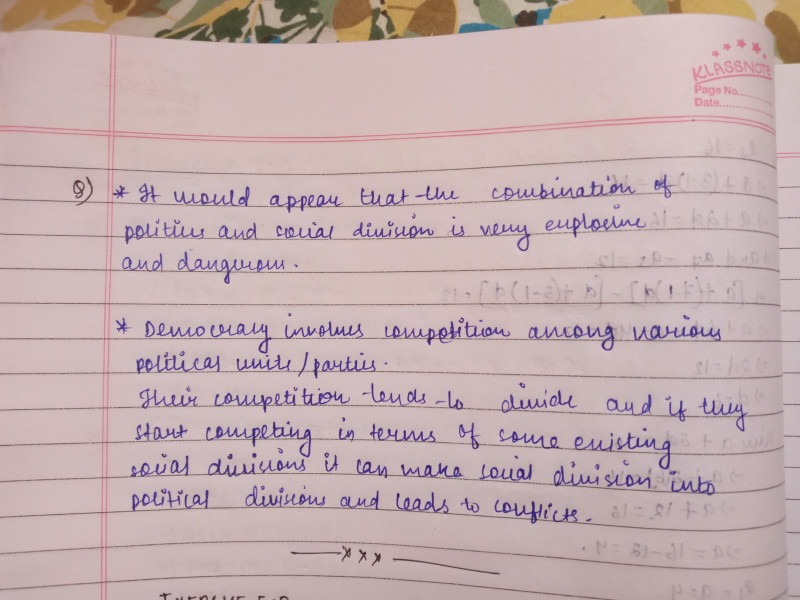 KLASSNOTE
Page No..........
Date..............
Q) * It would appear that the combination of
politics and social division is very explosive
and dangerous.
* Democracy involves competition among various
political units/parties.
Their competition tends to divide and if they
start competing in terms of some existing
social divisions it can make social division into
political divisions and leads to conflicts.
x x x